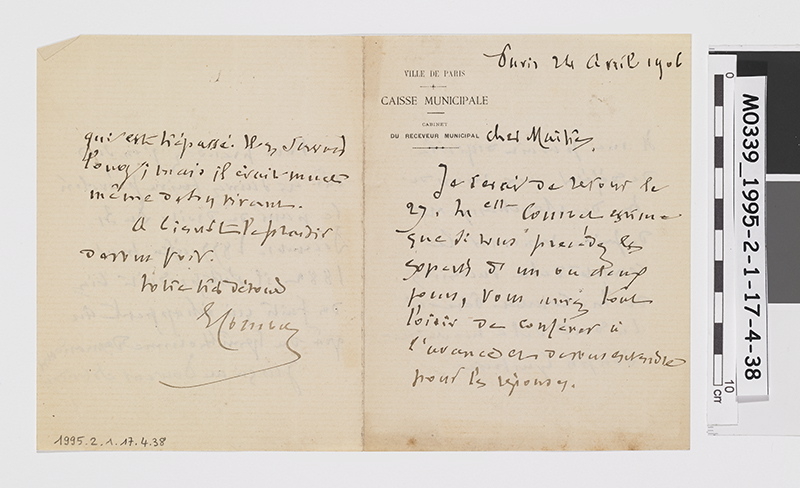 Paris 24 Avril 1906
VILLE DE PARIS
CAISSE MUNICIPALE
CABINET
DU RECEVEUR MUNICIPAL
cher Maître,
Je serai de retour le
27. M elle estime
que si vous précédez les
experts d'un ou deux
jours, vous aurez tout
loisir de conférer à
l'avance et de vous entendre
pour les réponses.
qui est trépassé. Il y
mais il était muet
même de son vivant.
A bientôt le plaisir
de vous voir.
Votre très dévoué
1995.2.1.17.4.38
M0339_1995-2-1-17-4-38
0
10
cm